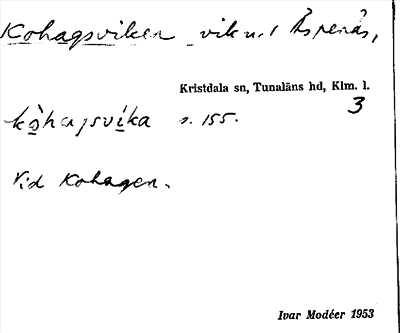 Kohagsviken vik u. 1 Äspenäs,
Kristdala sn, Tunaläns hd, Klm. l.
3
kò̱hagsvi̱ka s. 155.
Vid Kohagen.
Ivar Modéer 1953